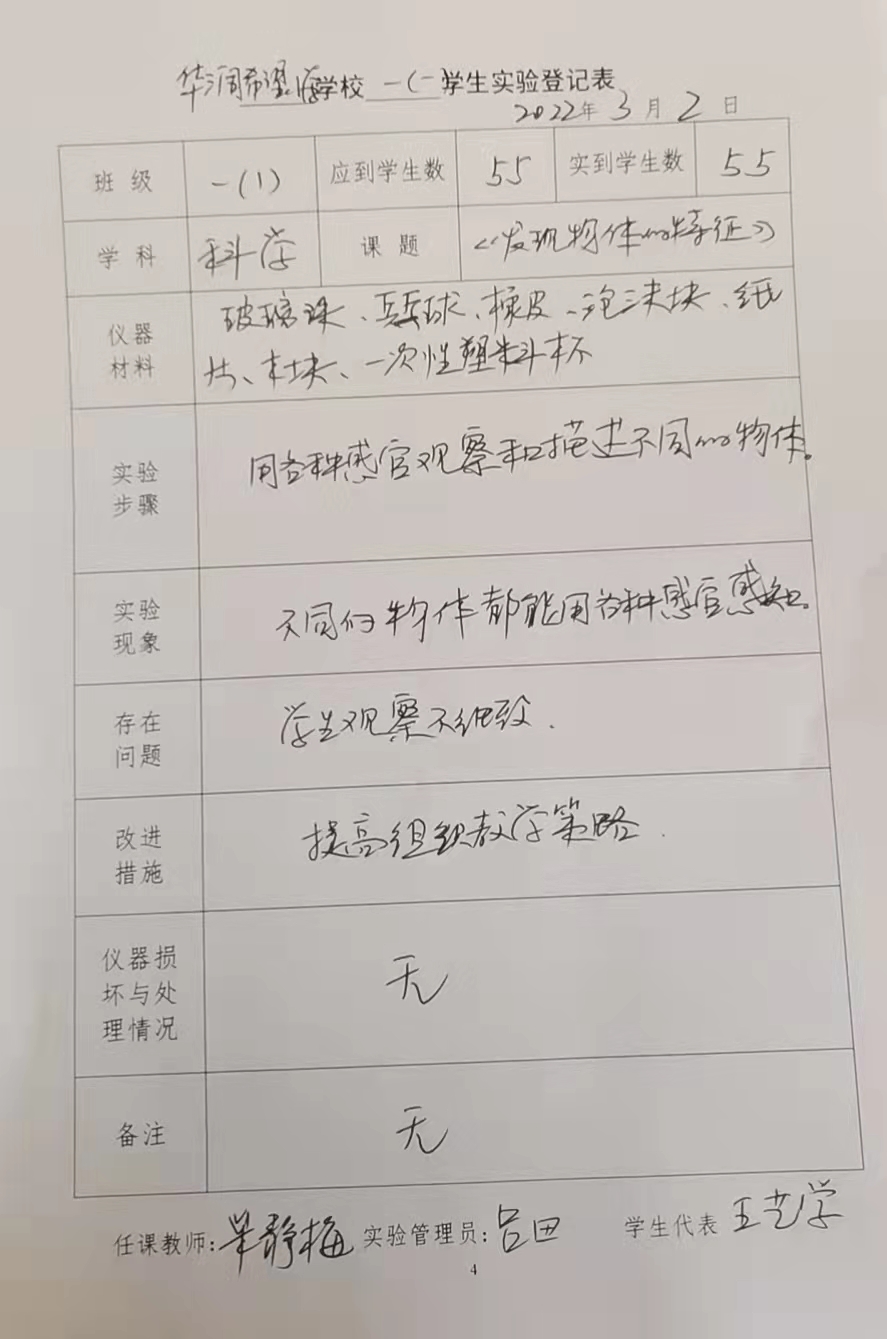 华润希望学校 一(一)学生实验登记表
2022年 3 月 2 日
班 级 一(1) 应到学生数 55 实到学生数 55
学 科 科学 课 题 《发现物体的特征》
仪器 玻璃珠、乒乓球、橡皮、泡沫块、纸
材料 片、木块、一次性塑料杯
实验
步骤 用各种感官观察和描述不同的物体。
实验
现象 不同的物体都能用各种感官感知。
存在
问题 学生观察不细致.
改进
措施 提高组织教学策略.
仪器损
坏与处 无
理情况
备注 无
任课教师: 静梅 实验管理员: 吕田 学生代表 王艺学
4